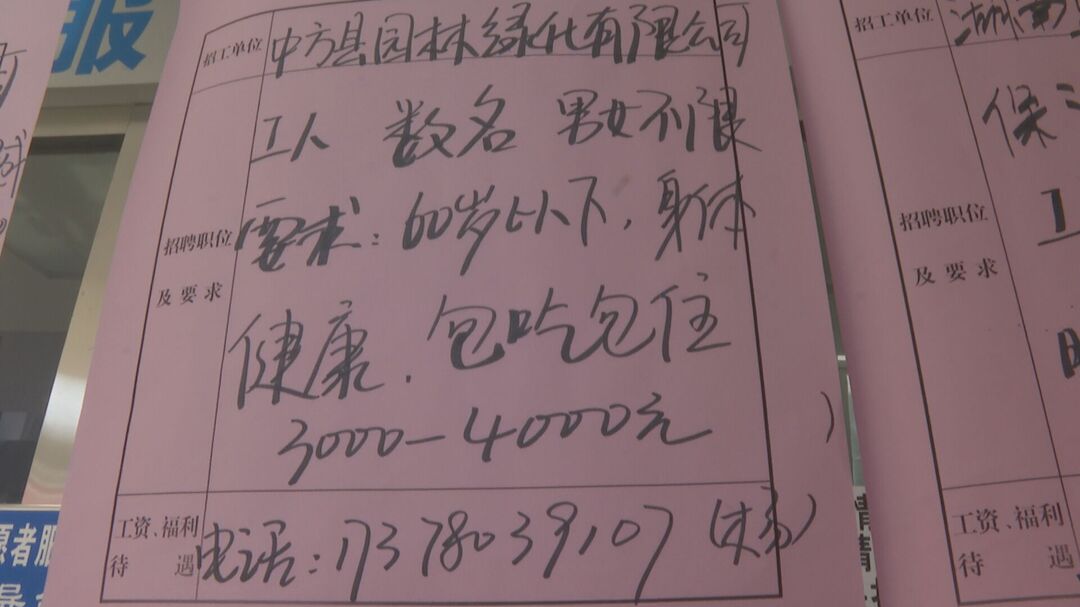 服
招工单位
中方县园林绿化有限公司
招聘职位
及要求
工人 数名 男女不限
要求：60岁以下，身体
健康．包吃包住
3000—4000元
工资、福利
待 遇
电话：17378039107
愿者服
招工单位
湖南
招聘职位
及要求
保
工
工资、福利
待 遇